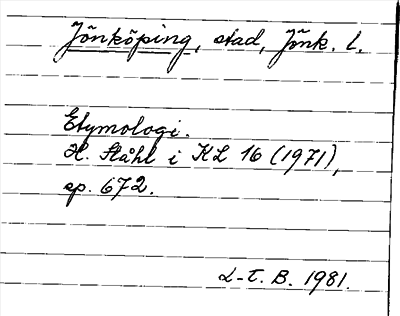 Jönköping, stad, Jönk. l.
Etymologi.
H. Ståhl i KL 16 (1971),
sp. 672.
L-E. B. 1981.